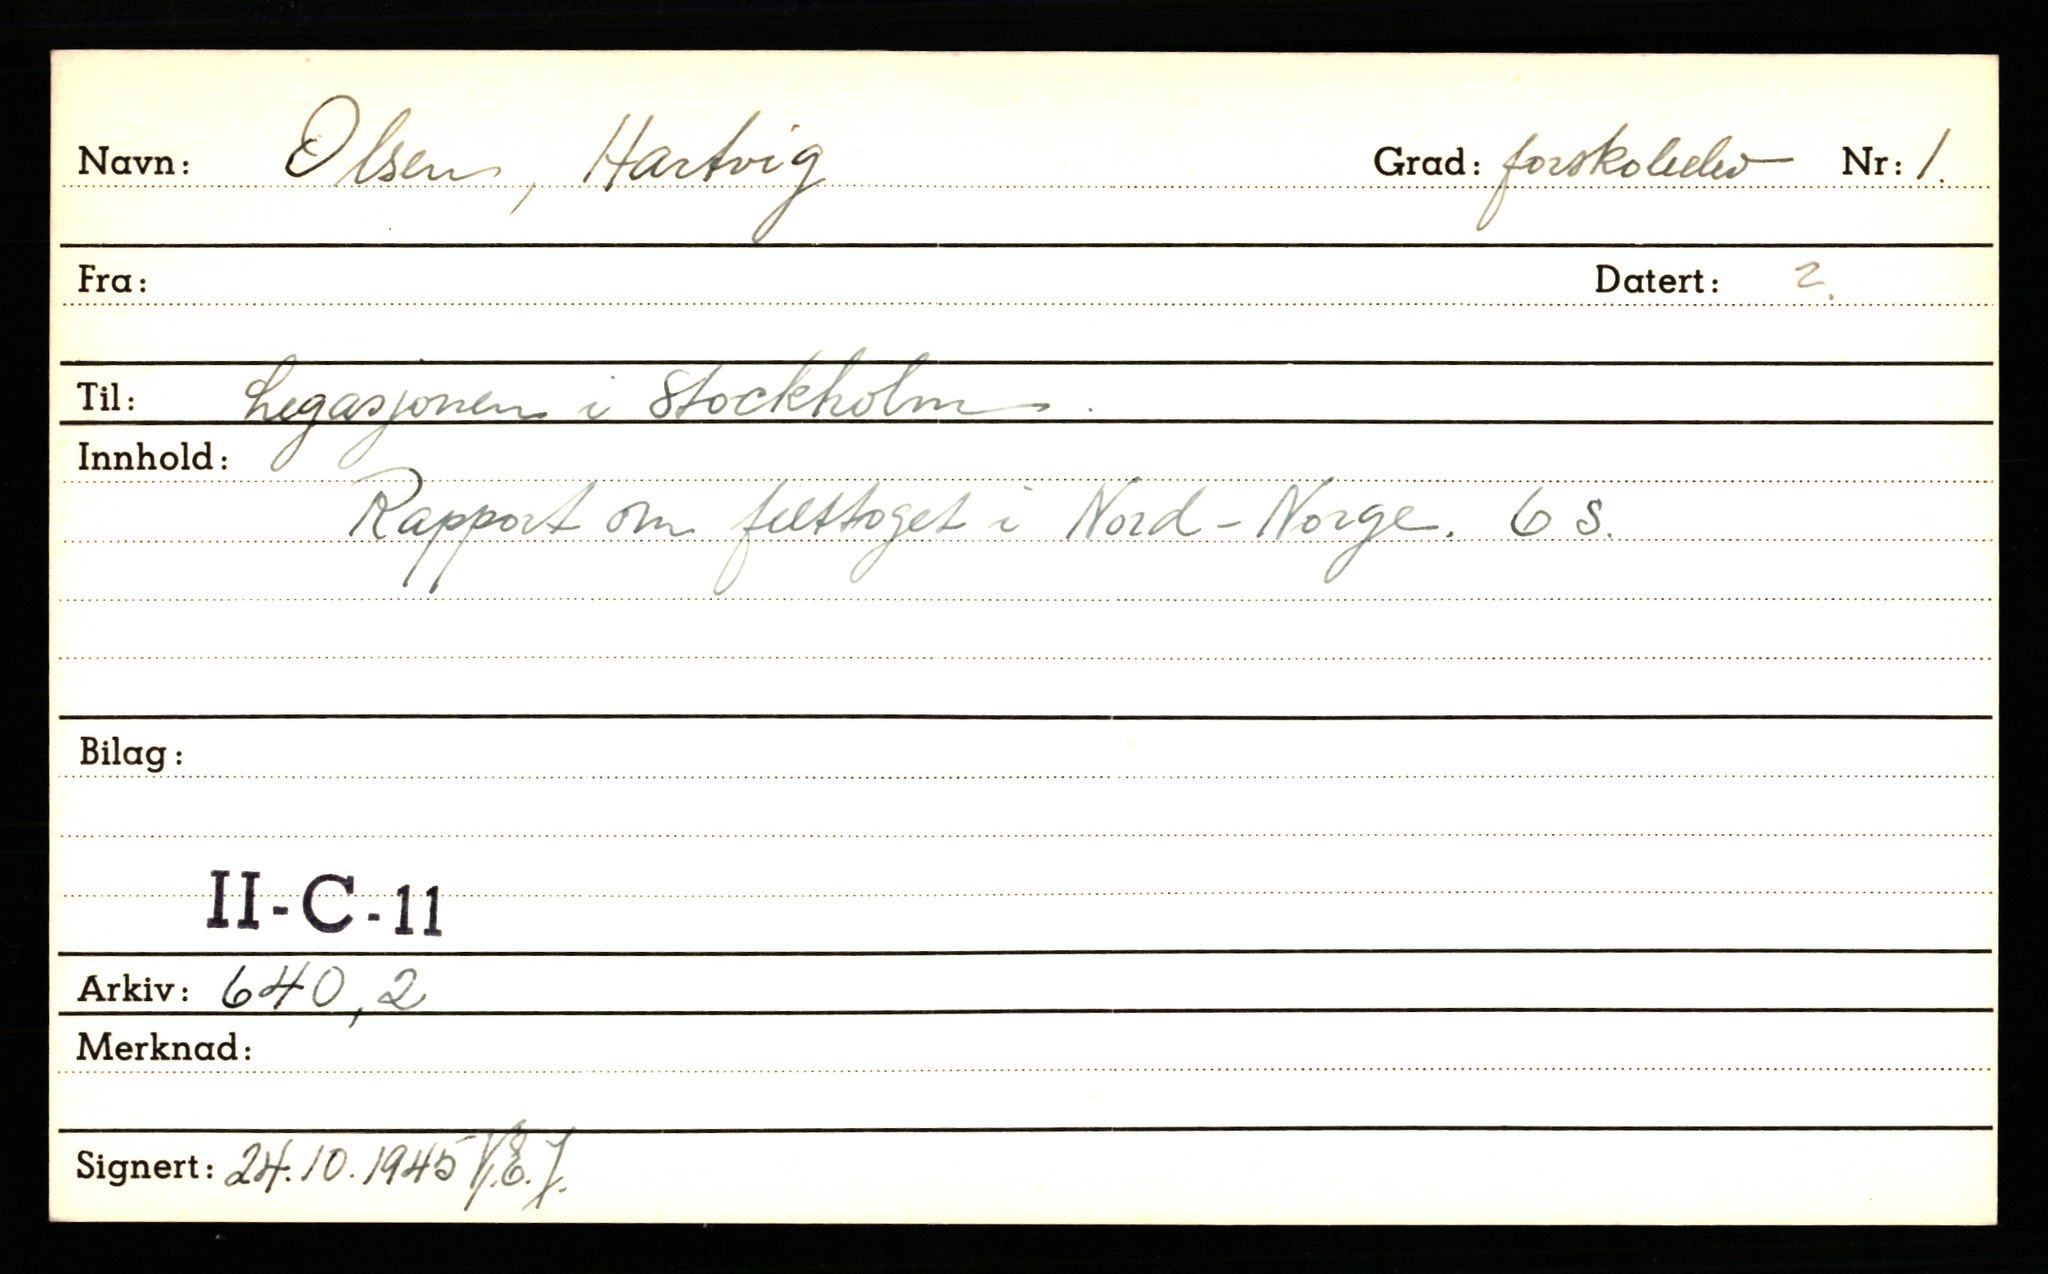 Navn: Olsen, Hartvig Grad: forskoleelev Nr: 1.
Fra: Datert: 2.
Til: Legasjonen i Stockholm.
Innhold:
Rapport om felttoget i Nord-Norge. 6 s.
Bilag:
II-C-11
Arkiv: 640,2
Merknad:
Signert: 24.10.1945